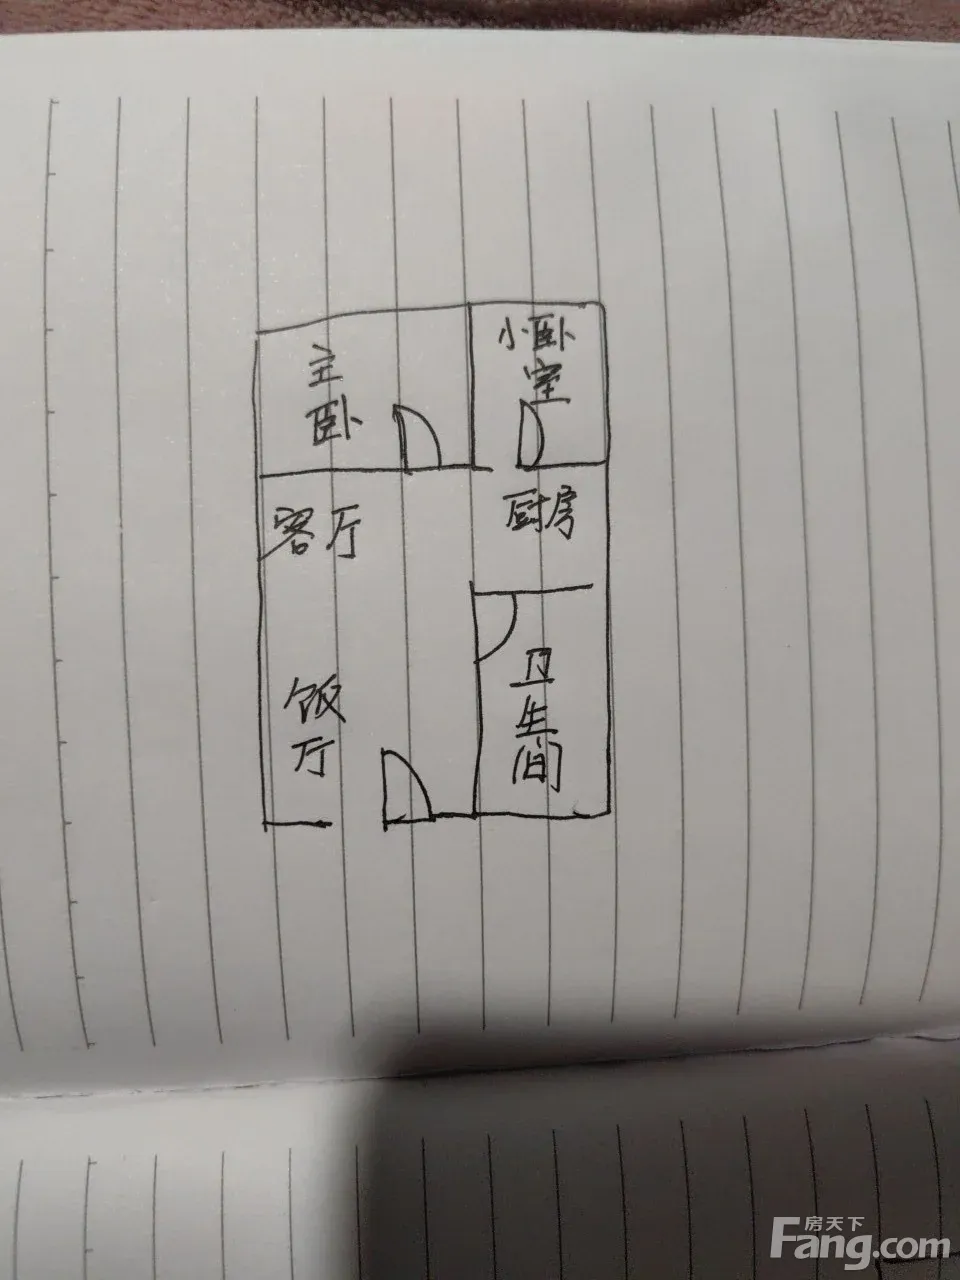 主
卧
小卧
室
客厅
厨房
饭
厅
卫
生
间
房天下
Fang.com